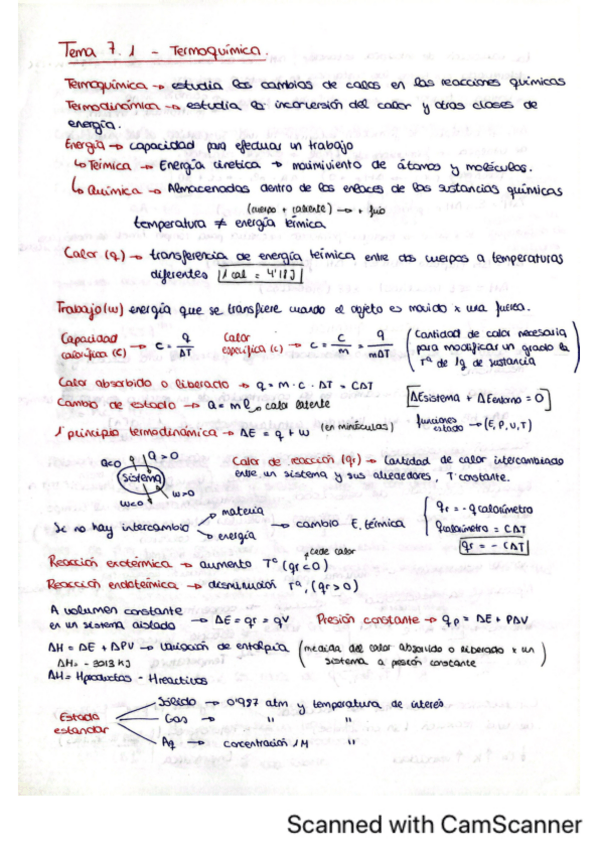 Tema 7.1 - Termoquímica.
Termoquímica → estudia los cambios de calor en las reacciones químicas
Termodinámica → estudia la inconversión del calor y otras clases de
energía.
Energía → capacidad para efectuar un trabajo
↳ Térmica → Energía cinética → movimiento de átomos y moléculas.
↳ Química → Almacenadas dentro de los enlaces de las sustancias químicas
(cuerpo + caliente) → + frío
temperatura ≠ energía térmica
Calor (q) → transferencia de energía térmica entre dos cuerpos a temperaturas
diferentes 1 cal = 4'18 J
Trabajo (w) energía que se transfiere cuando el objeto es movido x una fuerza.
Capacidad calorífica (C) → C = q/ΔT Calor específica (c) → c = C/m = q/mΔT (Cantidad de calor necesaria para modificar un grado la Tª de 1g de sustancia)
Calor absorbido o liberado → q = m · c · ΔT = CΔT
Cambio de estado → Q = m l → calor latente [ΔEsistema + ΔEentorno = 0]
1º principio termodinámica → ΔE = q + w (en minúsculas) - funciones estado → (E, P, V, T)
q<0 q>0
Sistema
w<0 w>0
Calor de reacción (qr) → Cantidad de calor intercambiado
entre un sistema y sus alrededores, T constante.
Si no hay intercambio → materia → energía → cambio E. térmica
qr = - q calorímetro
qcalorímetro = CΔT
qr = - CΔT
cede calor
Reacción exotérmica → aumento Tª (qr < 0)
Reacción endotérmica → disminución Tª, (qr > 0)
A volumen constante
en un sistema aislado → ΔE = qr = qV Presión constante → qp = ΔE + PΔV
ΔH = ΔE + ΔPV → Variación de entalpía (medida del calor absorbido o liberado x un sistema a presión constante)
ΔH = Hproductos - Hreactivos
Estado estándar
Sólido → 0'987 atm y temperatura de interés
Gas → " "
Aq → concentración 1M "
Scanned with CamScanner